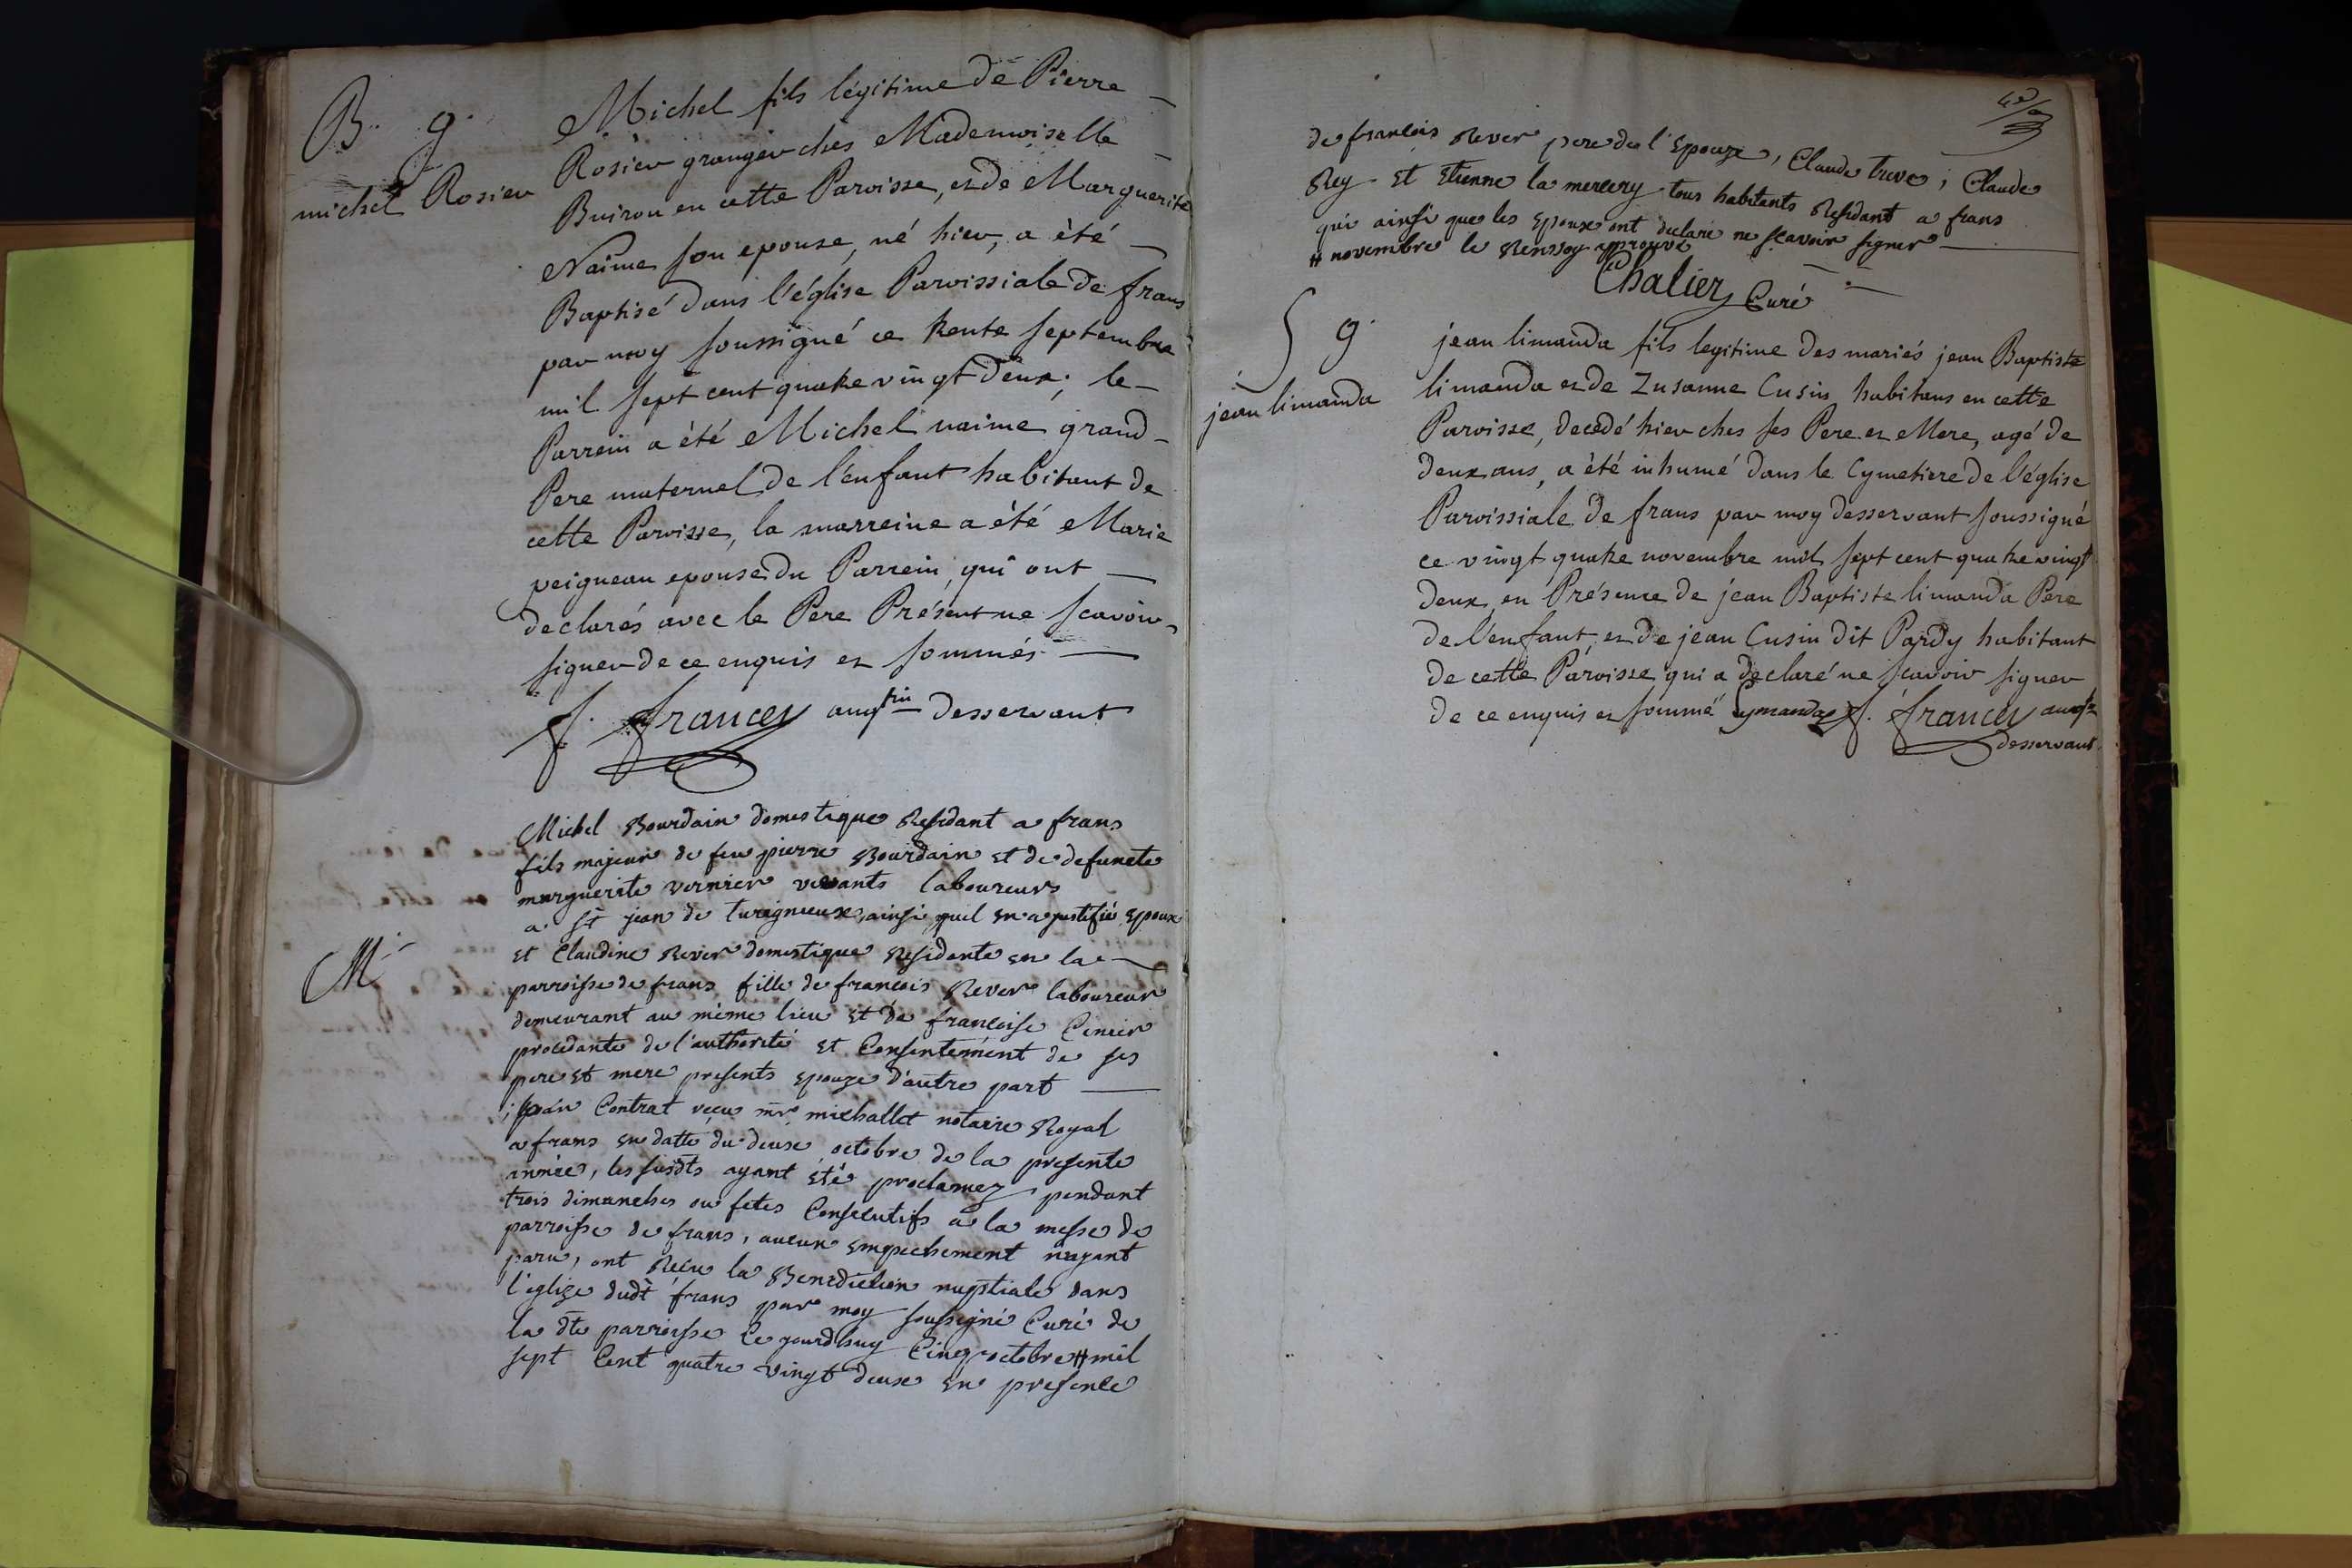 B. g.
michel Rosier
Michel fils légitime de Pierre
Rosier granger ches Mademoiselle
Buiron en cette Paroisse, et de Marguerite
Naime son epouse, né hier, a été
Baptisé dans l'église Paroissiale de frans
par moy soussigné ce trente septembre
mil sept cent quatre vingt deux; le
Parrein a été Michel naime grand
Pere maternel de l'enfant habitant de
cette Paroisse, la marreine a été Marie
peigneau epouse du Parrein, qui ont
declarés avec le Pere Présent ne scavoir
signer de ce enquis et sommés
f. francey augtin desservant
M
Michel Bourdain domestique Residant a frans
fils majeur de feu pierre Bourdain et de defuncte
marguerite vernier vivants laboureurs
a St jean de turigneux, ainsi quil en a justifié Epoux
et Claudine Rever domestique Residente en la
parroisse de frans fille de francois Rever laboureur
demeurant au même lieu et de francoise Cenier
procedante de l'authorité et Consentement de ses
pere et mere presents epouze d'autre part
; par Contrat recu mre michallet notaire Royal
a frans en datte du deux octobre de la presente
année, les susdts ayant eté proclamez pendant
trois dimanches ou fetes Consecutifs a la messe de
parroisse de frans, aucun empechement n'ayant
paru, ont Recu la Benediction nuptiale dans
l'eglize dudt frans par moy soussigné Curé de
la dte parroisse Ce jourdhuy Cinq octobre # mil
sept Cent quatre vingt deux en presence
de francois Rever pere de l'Epouze, Claude treve, Claude
Rey et Etienne la mercery tous habitants Residant a frans
qui ainsi que les Epoux ont declaré ne scavoir signer
# novembre le Renvoy approuvé
Chalier Curé
S g.
jean limanda
jean limanda fils legitime des mariés jean Baptiste
limanda et de Zusanne Cusin habitans en cette
Paroisse, decédé hier ches ses Pere et Mere, agé de
deux ans, a été inhumé dans le Cymetiere de l'église
Paroissiale de frans par moy desservant soussigné
ce vingt quatre novembre mil sept cent quatre vingt
deux, en Présence de jean Baptiste limanda Pere
de l'enfant, et de jean Cusin dit Pardy habitant
de cette Paroisse qui a declaré ne scavoir signer
de ce enquis et sommé Lymanda f. francey augt
desservant